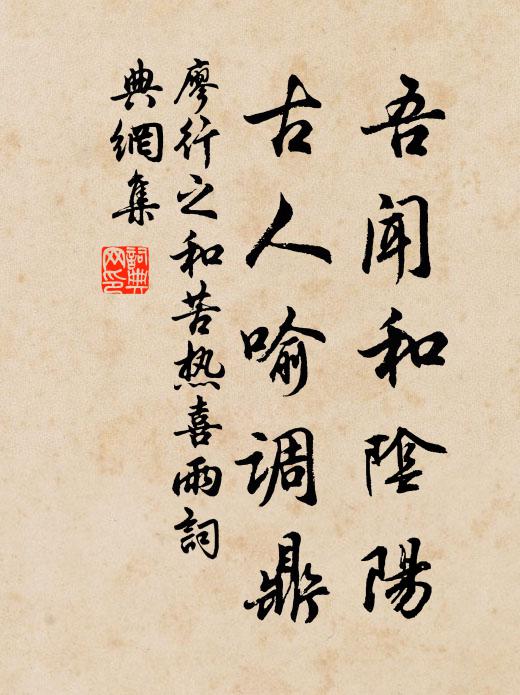 吾聞和陰陽
古人喻調鼎
廖行之和苦热喜雨詞
典網集
詞典网印